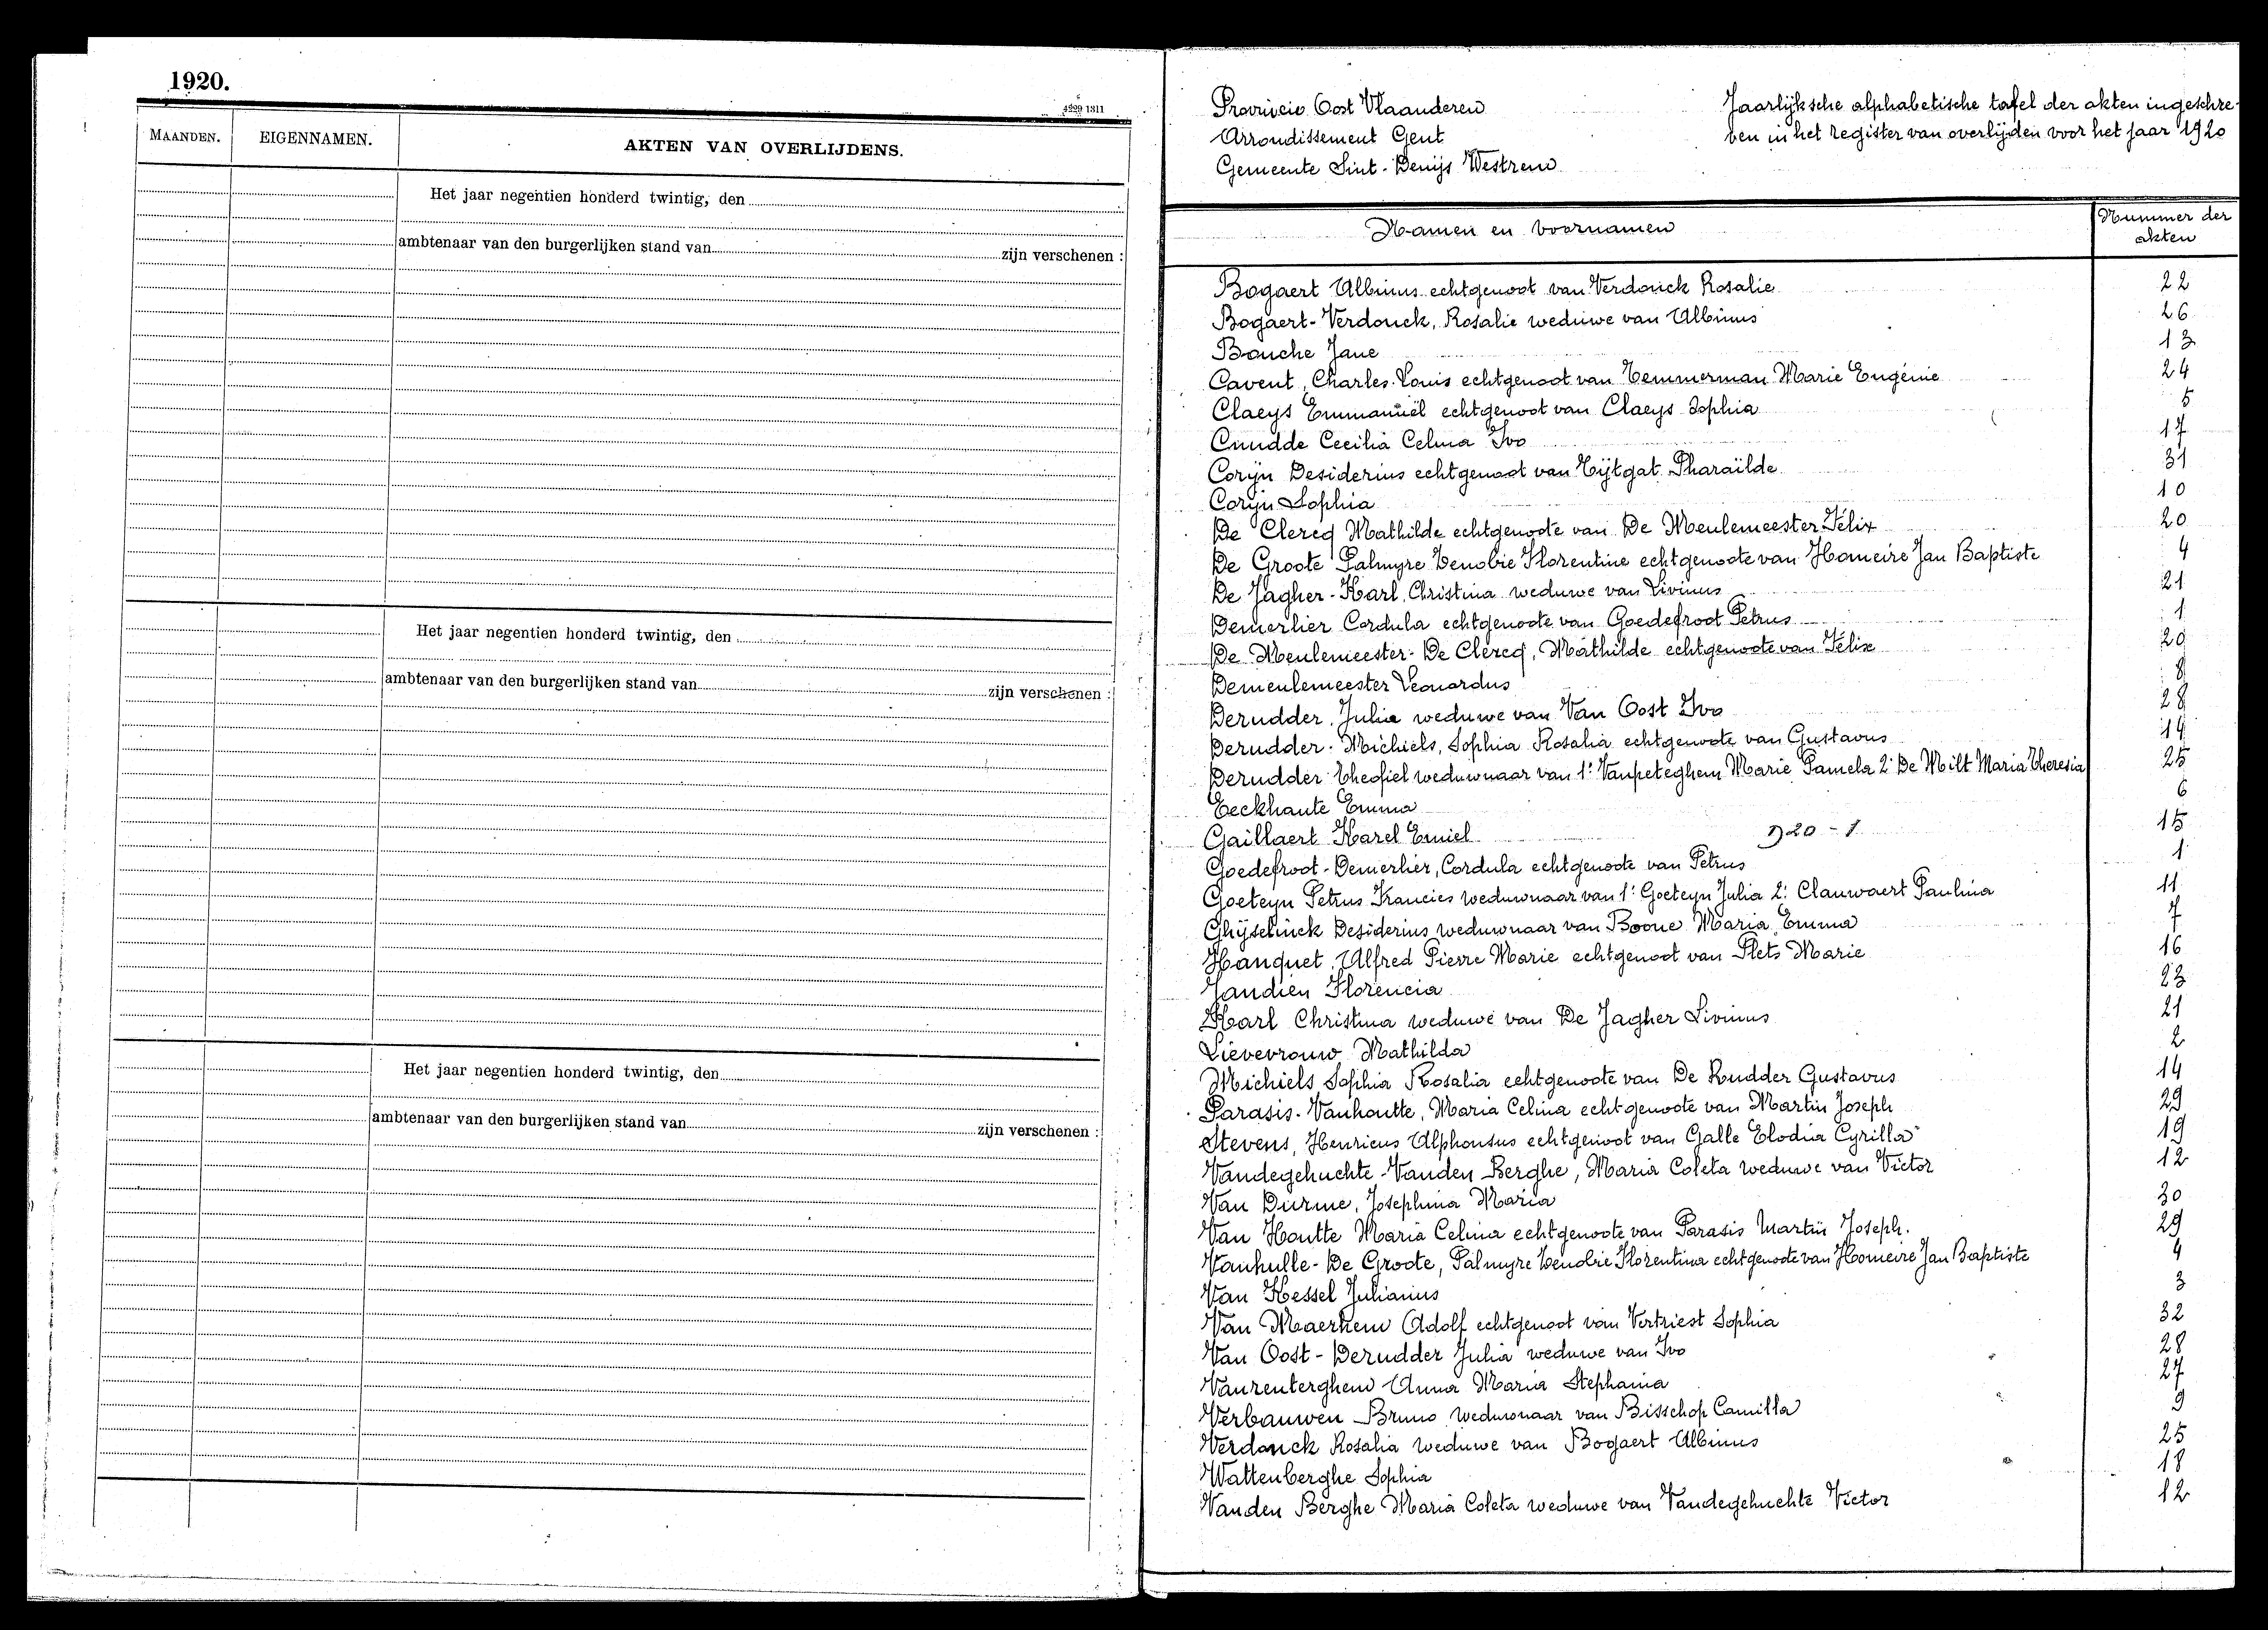 1920.
4229 1311
MAANDEN.
EIGENNAMEN.
AKTEN VAN OVERLIJDENS.
Het jaar negentien honderd twintig, den
ambtenaar van den burgerlijken stand van zijn verschenen :
Het jaar negentien honderd twintig, den
ambtenaar van den burgerlijken stand van zijn verschenen :
Het jaar negentien honderd twintig, den
ambtenaar van den burgerlijken stand van zijn verschenen :
Provincie Oost Vlaanderen
Arrondissement Gent
Gemeente Sint-Denijs Westrem
Jaarlijksche alphabetische tafel der akten ingeschre-
ven in het register van overlijden voor het jaar 1920
Namen en voornamen
Nummer der
akten
Bogaert Albinus echtgenoot van Verdonck Rosalie 22
Bogaert-Verdonck, Rosalie weduwe van Albinus 26
Bouche Jane 13
Cavent, Charles Louis echtgenoot van Temmerman Marie Eugénie 24
Claeys Emmanuël echtgenoot van Claeys Sophia 5
Cnudde Cecilia Celina Ivo 17
Corijn Desiderius echtgenoot van Tijtgat Pharaïlde 31
Corijn Sophia 10
De Clercq Mathilde echtgenoote van De Meulemeester Félix 20
De Groote Palmyre Zenobie Florentine echtgenoote van Homeire Jan Baptiste 4
De Jagher-Karl, Christina weduwe van Livinus 21
Demerlier Cordula echtgenoote van Goedefroot Petrus 1
De Meulemeester-De Clercq, Mathilde echtgenoote van Félix 20
Demeulemeester Leonardus 8
Derudder, Julia weduwe van Van Oost Ivo 28
Derudder-Michiels, Sophia Rosalia echtgenoote van Gustavus 14
Derudder Theofiel weduwnaar van 1° Vanpeteghem Marie Pamela 2° De Milt Maria Theresia 25
Eeckhaute Emma 6
Gaillaert Karel Emiel 920 - 1 15
Goedefroot-Demerlier, Cordula echtgenoote van Petrus 1
Goeteyn Petrus Francies weduwnaar van 1° Goeteyn Julia 2° Clauwaert Paulina 11
Ghijselinck Desiderius weduwnaar van Boone Maria Emma 7
Hanquet, Alfred Pierre Marie echtgenoot van Plets Marie 16
Jandien Florencia 23
Karl Christina weduwe van De Jagher Livinus 21
Lievevrouw Mathilda 2
Michiels Sophia Rosalia echtgenoote van De Rudder Gustavus 14
Parasis-Vanhoutte, Maria Celina echtgenoote van Martin Joseph 29
Stevens, Henricus Alphonsus echtgenoot van Galle Elodia Cyrilla 19
Vandegehuchte-Vanden Berghe, Maria Coleta weduwe van Victor 12
Van Durme, Josephina Maria 30
Van Houtte Maria Celina echtgenoote van Parasis Martin Joseph. 29
Vanhulle-De Groote, Palmyre Florentina echtgenoote van Homeire Jan Baptiste 4
Van Kessel Julianus 3
Van Maerkem Adolf echtgenoot van Vertriest Sophia 32
Van Oost-Derudder Julia weduwe van Ivo 28
Vanrenterghem Anna Maria Stephania 27
Verbauwen Bruno weduwnaar van Bisschop Camilla 9
Verdonck Rosalia weduwe van Bogaert Albinus 25
Wattenberghe Sophia 18
Vanden Berghe Maria Coleta weduwe van Vandegehuchte Victor 12